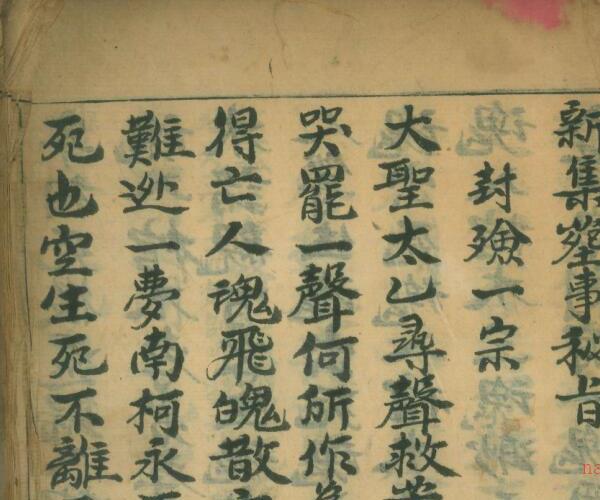 新集瑩事秘旨
封殮一宗
大聖太乙尋聲救苦
哭罷一聲何所作
得亡人魂飛魄散
難迯一夢南柯永
死也空生死不離